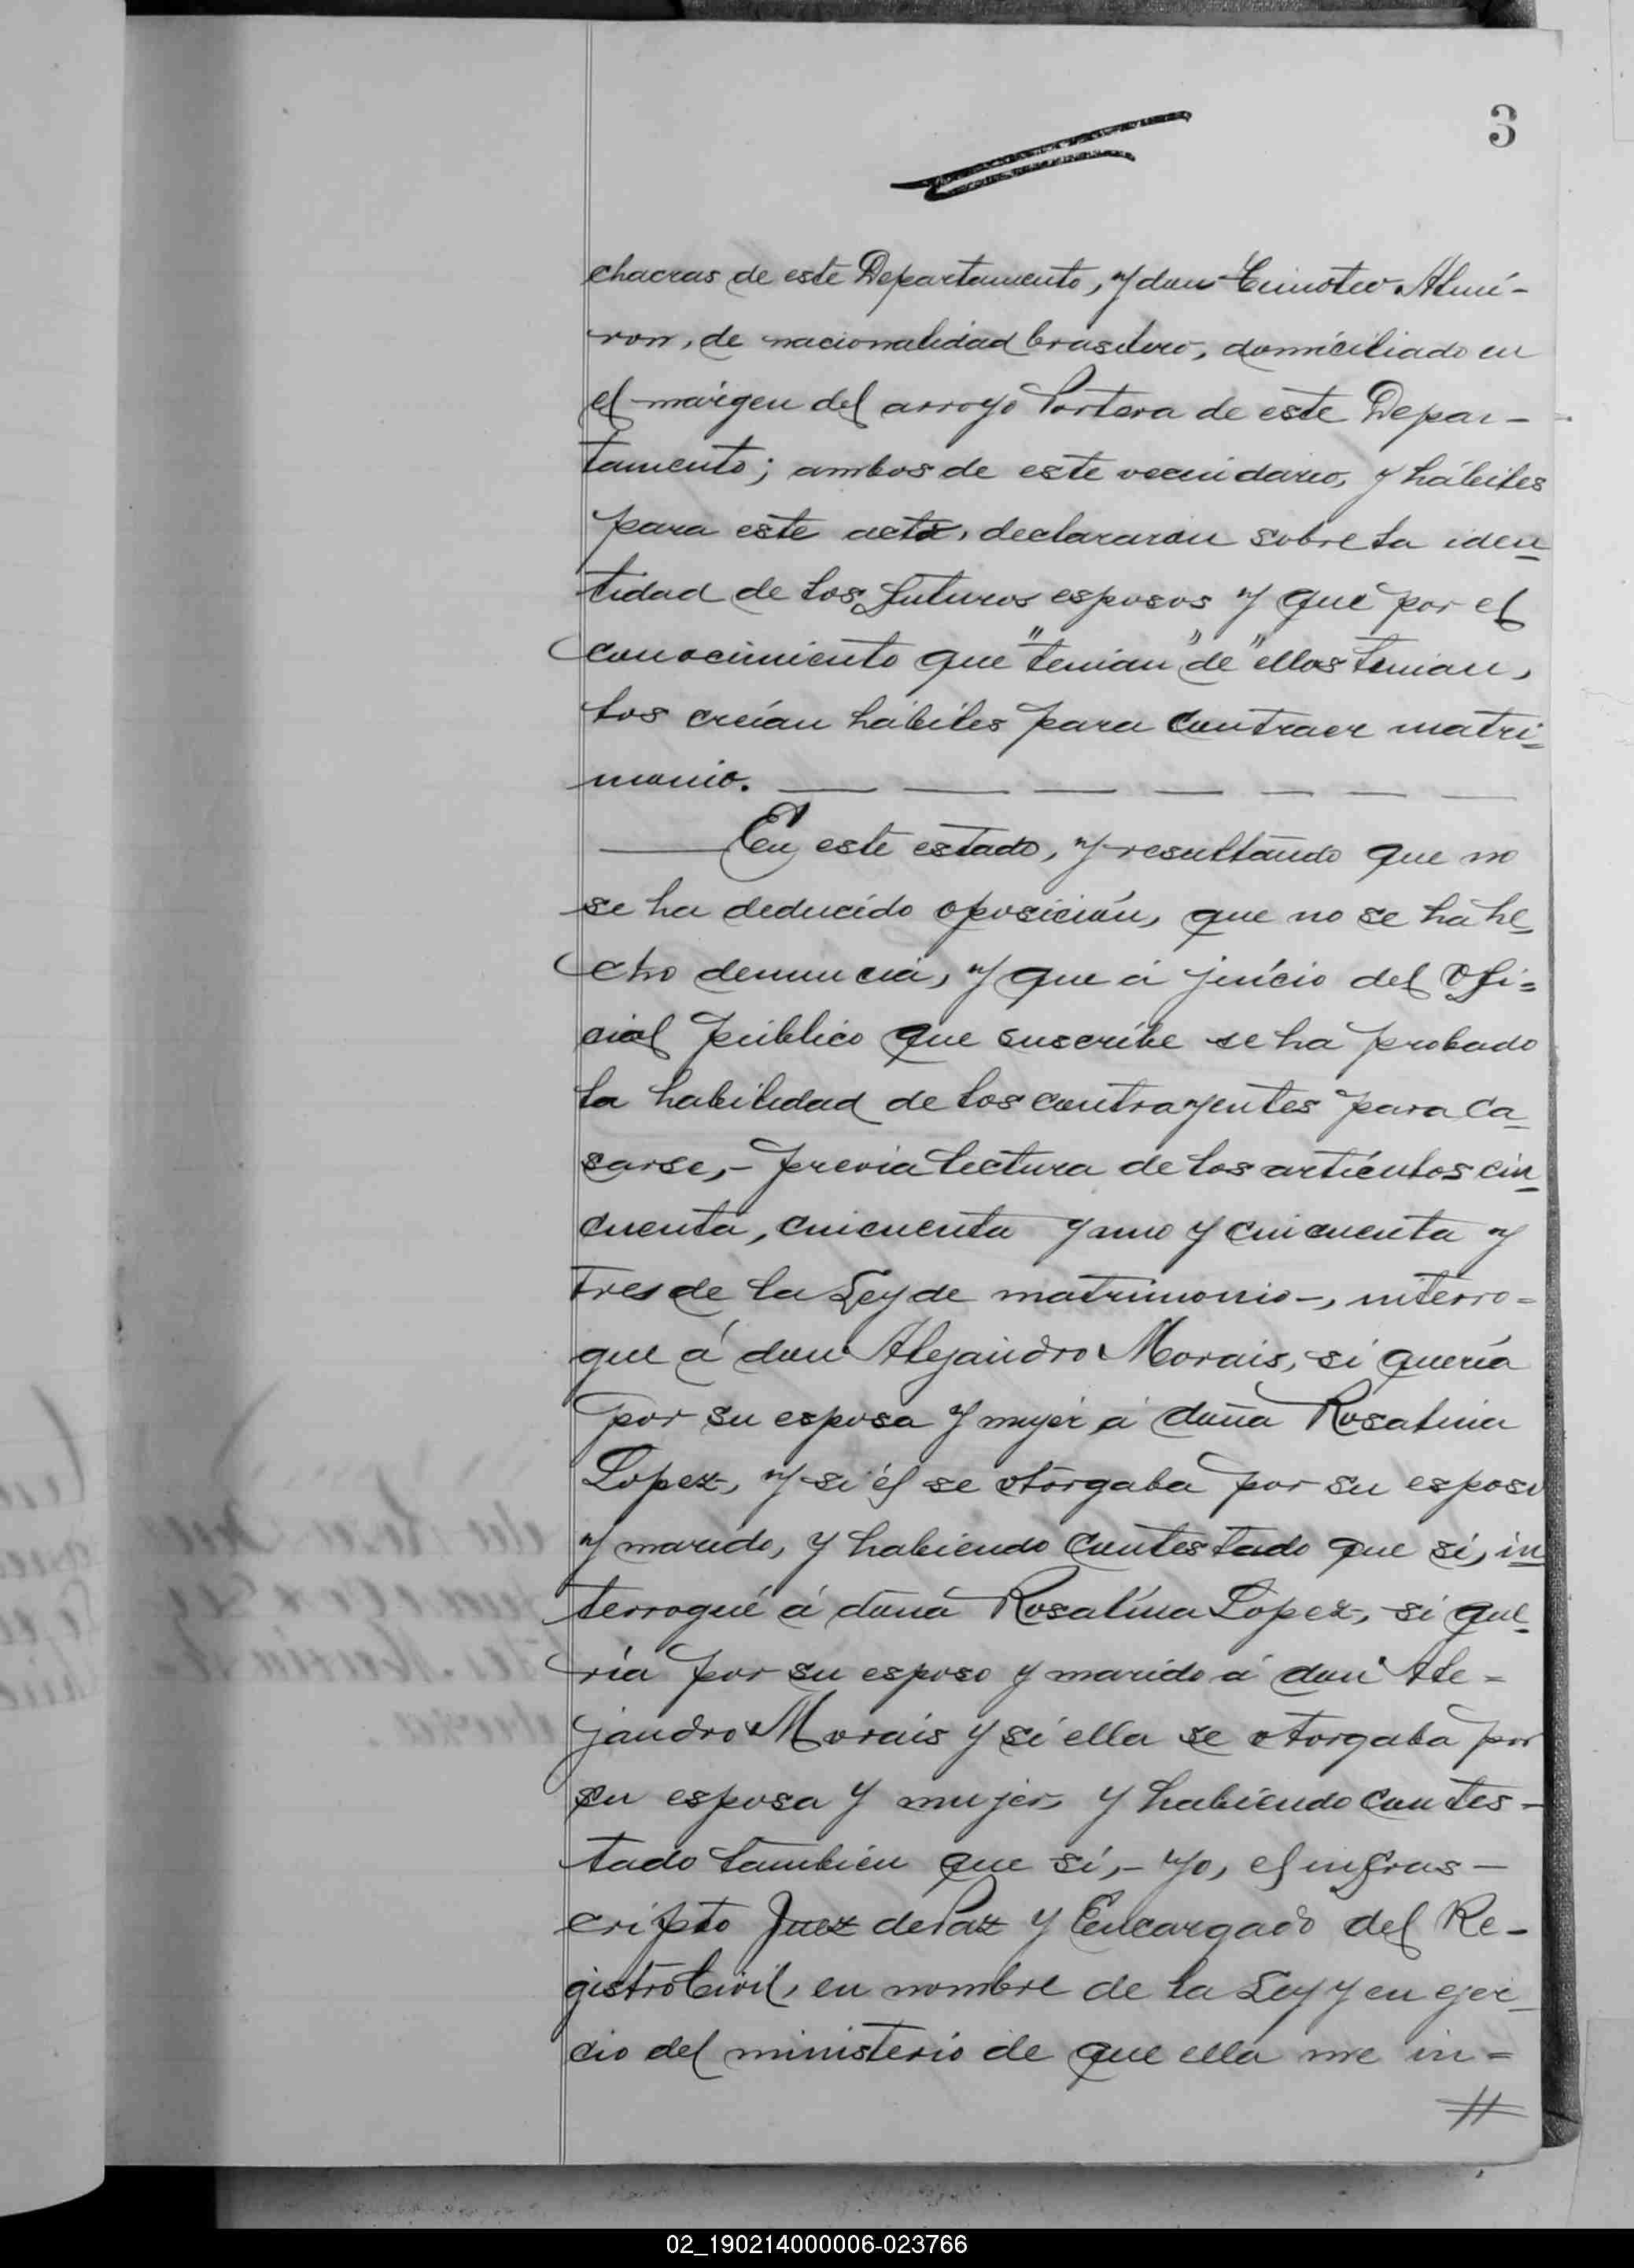 3
chacras de este Departamento, y don Timoteo Almi-
ron, de nacionalidad brasilero, domiciliado en
el márgen del arroyo Portera de este Depar-
tamento; ambos de este vecindario, y hábiles
para este acto, declararon sobre la iden
tidad de los futuros esposos y que por el
conocimiento que "tenian" de "ellos tenian,
los creían hábiles para contraer matri=
monio.
En este estado, y resultando que no
se ha deducido oposición, que no se ha he
cho denuncia, y que á juicio del Ofi=
cial Público que suscribe se ha probado
la habilidad de los contrayentes para ca
sarse,- previa lectura de los artículos cin
cuenta, cincuenta y uno y cincuenta y
tres de la Ley de matrimonio-, interro=
gue á don Alejandro Morais, si quería
por su esposa y mujer á doña Rosalina
Lopez, y si él se otorgaba por su esposo
y marido, y habiendo contestado que si, in
terrogué á doña Rosalina Lopez, si que
ría por su esposo y marido á don Ale=
jandro Morais y si ella se otorgaba por
su esposa y mujer, y habiendo contes-
tado tambien que sí,- yo, el infras-
cripto Juez de Paz y Encargado del Re-
gistro Civil, en nombre de la Ley y en ejer
cio del ministerio de que ella me in=
#
02_190214000006-023766